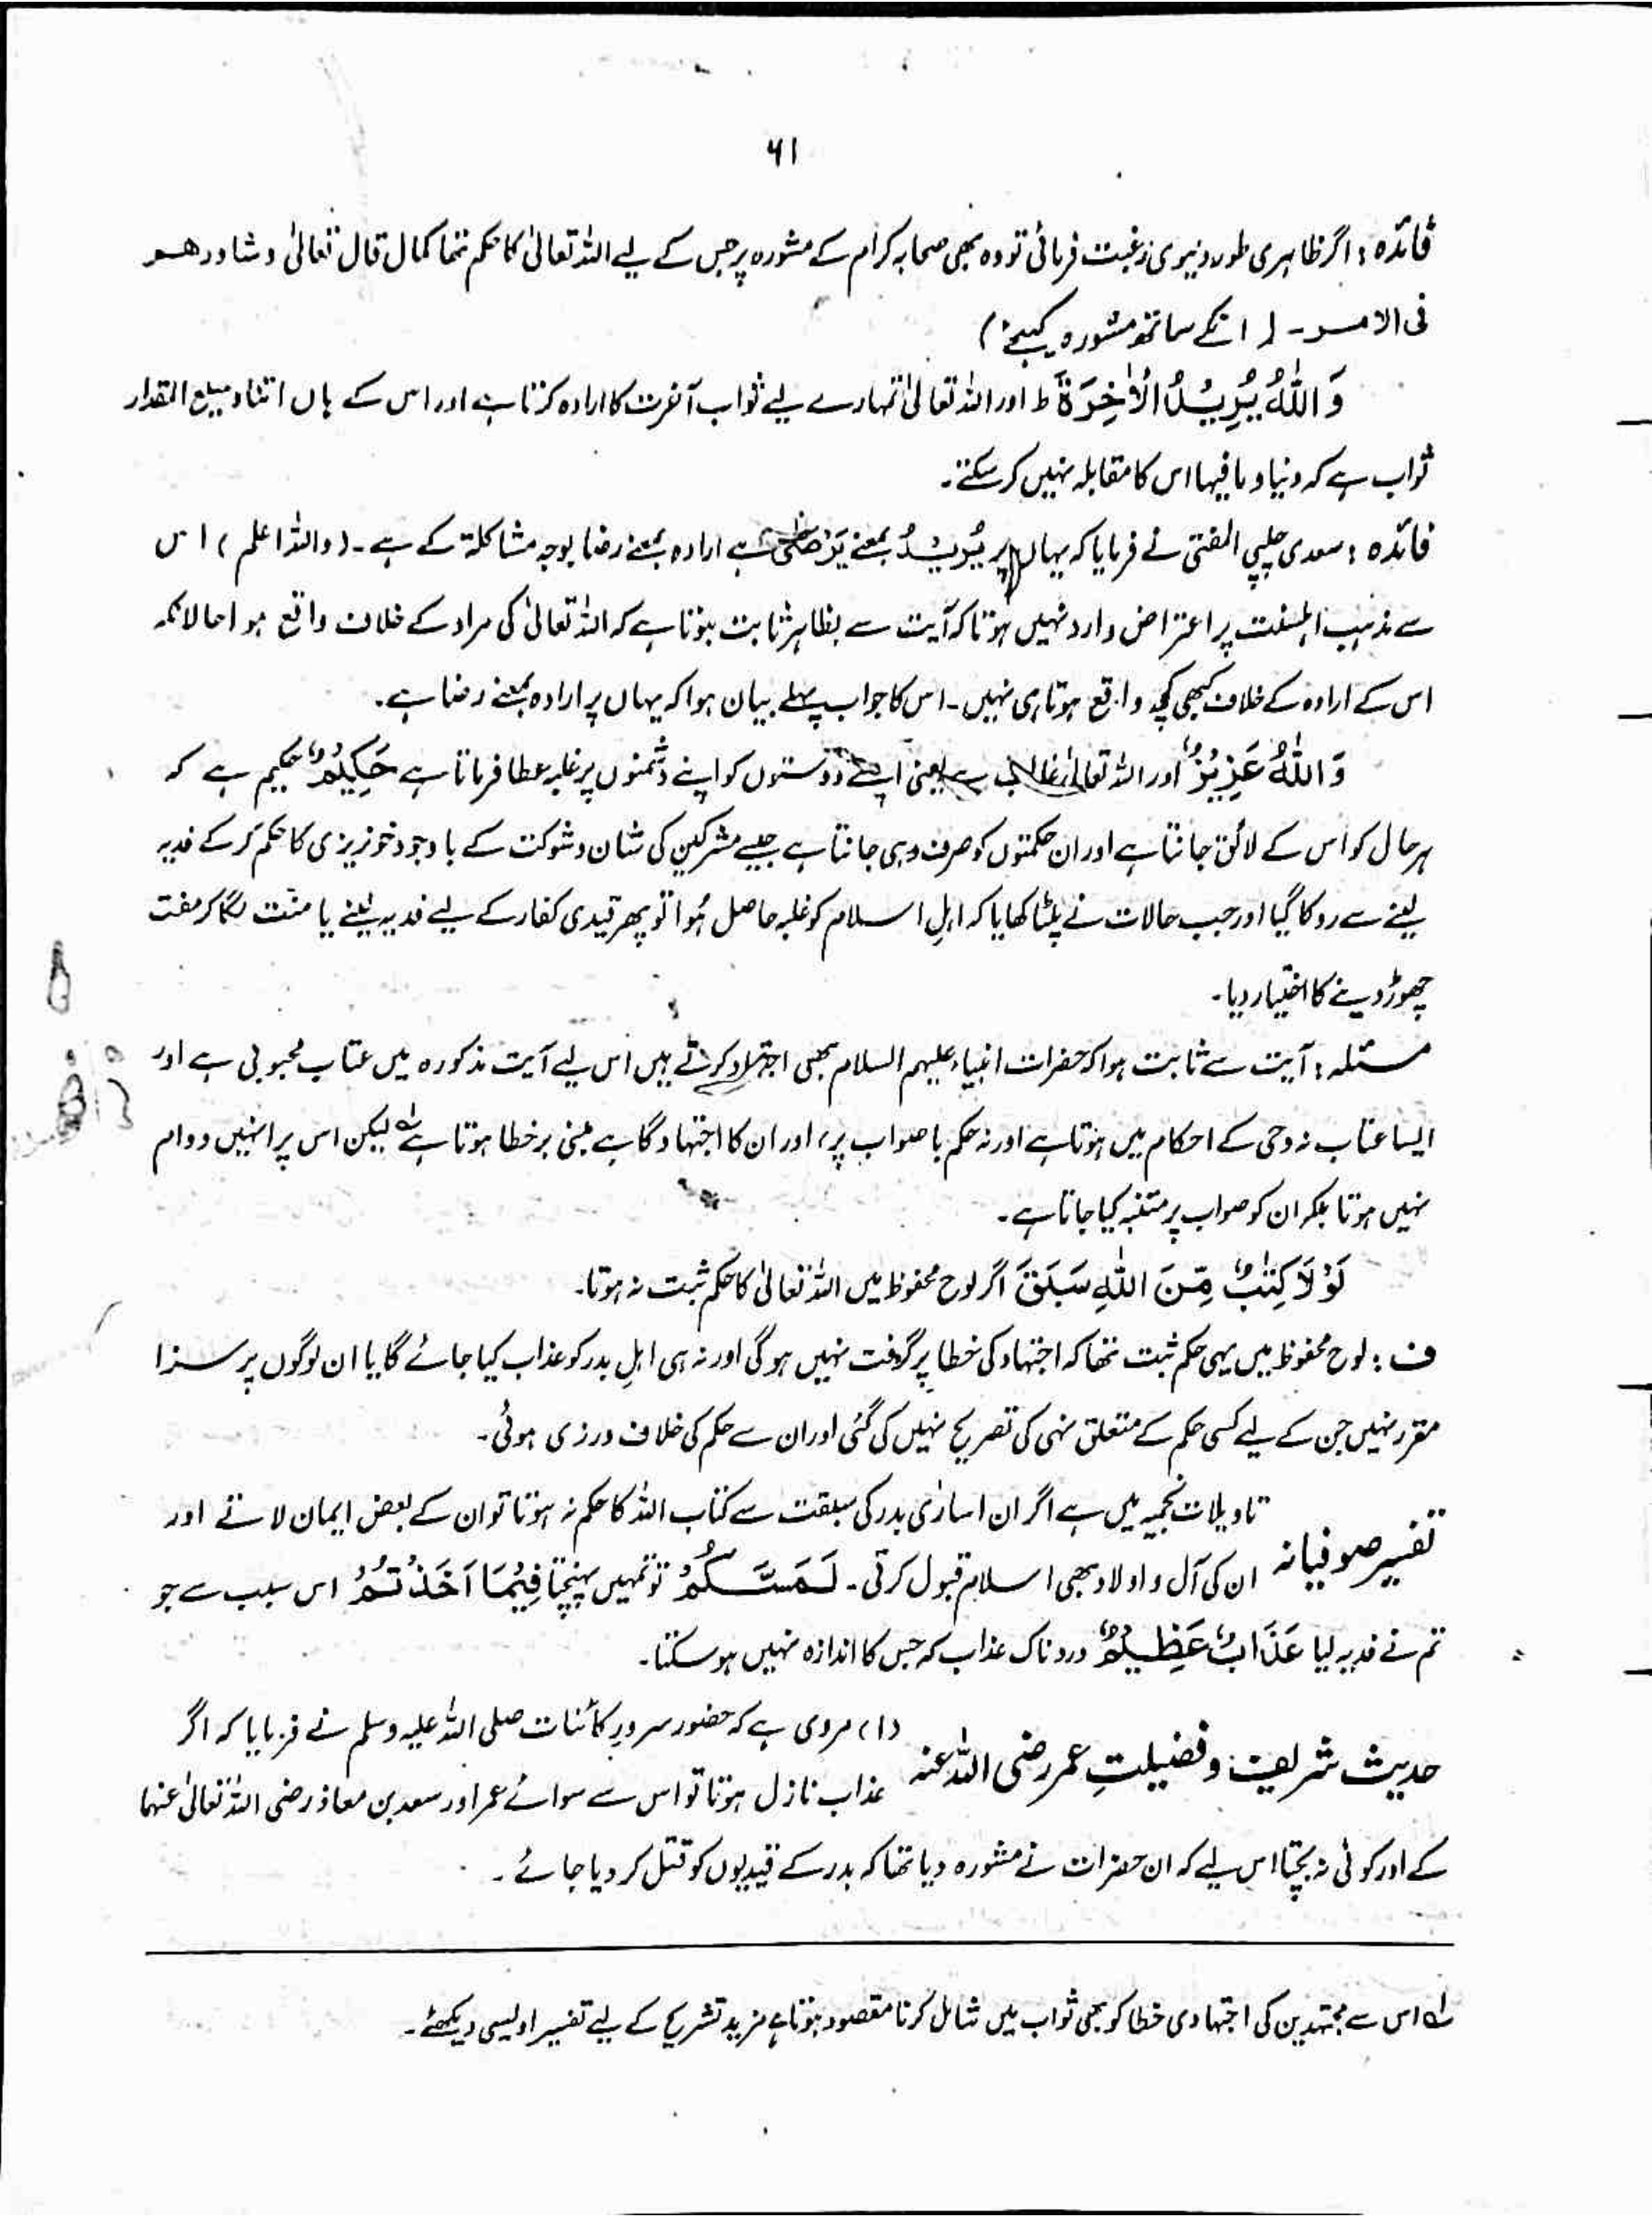 ۶۱
فائدہ : اگر ظاہری طور دنیوی رغبت فرمائی تو وہ بھی صحابہ کرام کے مشورہ پر جس کے لیے اللہ تعالیٰ کا حکم تھا کما قال تعالیٰ و شاورھم
فی الامر۔ ( انکے ساتھ مشورہ کیجئے )
وَاللّٰهُ يُرِيْدُ الْاٰخِرَةَ ط اور اللہ تعالیٰ تمہارے لیے ثواب آخرت کا ارادہ کرتا ہے اور اس کے ہاں اتنا و مبلغ المقدار
ثواب ہے کہ دنیا و مافیہا اس کا مقابلہ نہیں کر سکتے۔
فائدہ : سعدی چلپی المفتی نے فرمایا کہ یہاں پر يُرِيْدُ بمعنے يَرْضٰى ہے ارادہ بمعنے رضا بوجہ مشاکلة کے ہے۔ (واللہ اعلم) اس
سے مذہب اہلسنت پر اعتراض وارد نہیں ہوتا کہ آیت سے بظاہر ثابت ہوتا ہے کہ اللہ تعالیٰ کی مراد کے خلاف واقع ہوا حالانکہ
اس کے ارادہ کے خلاف کبھی کچھ واقع ہوتا ہی نہیں۔ اس کا جواب پہلے بیان ہوا کہ یہاں پر ارادہ بمعنے رضا ہے۔
وَاللّٰهُ عَزِيْزٌ اور اللہ تعالیٰ غالب ہے یعنی اپنے دوستوں کو اپنے دشمنوں پر غلبہ عطا فرماتا ہے حَكِيْمٌ حکیم ہے کہ
ہر حال کو اس کے لائق جانتا ہے اور ان حکمتوں کو صرف وہی جانتا ہے جیسے مشرکین کی شان و شوکت کے باوجود خونریزی کا حکم کر کے فدیہ
لینے سے روکا گیا اور جب حالات نے پلٹا کھایا کہ اہلِ اسلام کو غلبہ حاصل ہُوا تو پھر قیدی کفار کے لیے فدیہ لینے یا منت لگا کر مفت
چھوڑ دینے کا اختیار دیا۔
مسئلہ : آیت سے ثابت ہوا کہ حضرات انبیاء علیہم السلام بھی اجتہاد کرتے ہیں اس لیے آیت مذکورہ میں عتاب محبوبی ہے اور
ایسا عتاب نہ وحی کے احکام میں ہوتا ہے اور نہ حکم باصواب پر، اور ان کا اجتہاد گاہے مبنی بر خطا ہوتا ہے لہ لیکن اس پر انہیں دوام
نہیں ہوتا بلکہ ان کو صواب پر متنبہ کیا جاتا ہے۔
لَوْلَا كِتٰبٌ مِّنَ اللّٰهِ سَبَقَ اگر لوح محفوظ میں اللہ تعالیٰ کا حکم ثبت نہ ہوتا۔
ف : لوح محفوظ میں یہی حکم ثبت تھا کہ اجتہاد کی خطا پر گرفت نہیں ہوگی اور نہ ہی اہلِ بدر کو عذاب کیا جائے گا یا ان لوگوں پر سزا
مقرر نہیں جن کے لیے کسی حکم کے متعلق نہی کی تصریح نہیں کی گئی اور ان سے حکم کی خلاف ورزی ہوئی۔
تفسیر صوفیانہ
تاویلات نجمیہ میں ہے اگر ان اسارٰی بدر کی سبقت سے کتاب اللہ کا حکم نہ ہوتا تو ان کے بعض ایمان لاتے اور
ان کی آل و اولاد بھی اسلام قبول کرتی۔ لَمَسَّكُمْ تو تمہیں پہنچتا فِيْمَا اَخَذْتُمْ اس سبب سے جو
تم نے فدیہ لیا عَذَابٌ عَظِيْمٌ دردناک عذاب کہ جس کا اندازہ نہیں ہو سکتا۔
حدیث شریف و فضیلتِ عمر رضی اللہ عنہ
(۱) مروی ہے کہ حضور سرورِ کائنات صلی اللہ علیہ وسلم نے فرمایا کہ اگر
عذاب نازل ہوتا تو اس سے سوائے عمر اور سعد بن معاذ رضی اللہ تعالیٰ عنہما
کے اور کوئی نہ بچتا اس لیے کہ ان حضرات نے مشورہ دیا تھا کہ بدر کے قیدیوں کو قتل کر دیا جائے۔
لہ اس سے مجتہدین کی اجتہادی خطا کو بھی ثواب میں شامل کرنا مقصود ہوتا ہے مزید تشریح کے لیے تفسیر اویسی دیکھئے۔